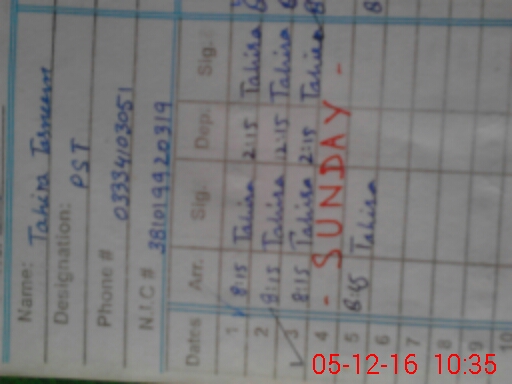 Name: Tahira Tasneem
Designation: PST
Phone # 03334103051
N.I.C # 3810199920319
Dates Arr. Sig. Dep. Sig.
1 8:15 Tahira 2:15 Tahira
2 8:15 Tahira 2:15 Tahira
3 8:15 Tahira 2:15 Tahira
4 - SUNDAY -
5 8:15 Tahira
6
7
8
9
10
05-12-16 10:35